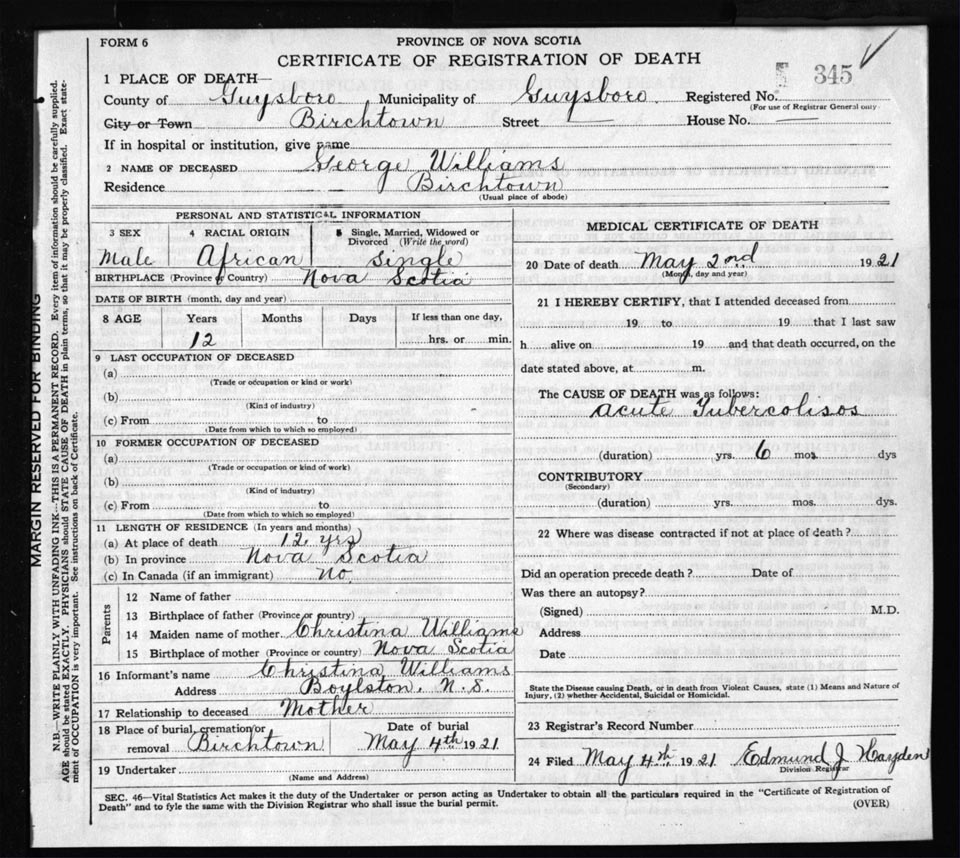 FORM 6
PROVINCE OF NOVA SCOTIA
CERTIFICATE OF REGISTRATION OF DEATH
1 PLACE OF DEATH—
345
County of Guysboro Municipality of Guysboro. Registered No.
(For use of Registrar General only
City or Town Birchtown Street — House No. —
If in hospital or institution, give name
2 NAME OF DECEASED George Williams
Residence Birchtown
(Usual place of abode)
PERSONAL AND STATISTICAL INFORMATION
3 SEX 4 RACIAL ORIGIN 5 Single, Married, Widowed or
Divorced (Write the word)
Male African Single
BIRTHPLACE (Province or Country) Nova Scotia
DATE OF BIRTH (month, day and year)
8 AGE Years Months Days If less than one day,
12 hrs. or min.
9 LAST OCCUPATION OF DECEASED
(a)
(Trade or occupation or kind or work)
(b)
(Kind of industry)
(c) From to
(Date from which to which so employed)
10 FORMER OCCUPATION OF DECEASED
(a)
(Trade or occupation or kind of work)
(b)
(Kind of industry)
(c) From to
(Date from which to which so employed)
11 LENGTH OF RESIDENCE (In years and months)
(a) At place of death 12 yrs
(b) In province Nova Scotia
(c) In Canada (if an immigrant) No.
Parents
12 Name of father
13 Birthplace of father (Province or country)
14 Maiden name of mother Christina Williams
15 Birthplace of mother (Province or country) Nova Scotia
16 Informant's name Christina Williams
Address Boylston, N. S.
17 Relationship to deceased Mother
18 Place of burial, cremation or Date of burial
removal Birchtown May 4th 1921
19 Undertaker
(Name and Address)
MEDICAL CERTIFICATE OF DEATH
20 Date of death May 2nd 1921
(Month, day and year)
21 I HEREBY CERTIFY, that I attended deceased from
19 to 19 that I last saw
h alive on 19 and that death occurred, on the
date stated above, at m.
The CAUSE OF DEATH was as follows:
Acute Tubercolisos
(duration) yrs. 6 mos. dys
CONTRIBUTORY
(Secondary)
(duration) yrs. mos. dys.
22 Where was disease contracted if not at place of death?
Did an operation precede death? Date of
Was there an autopsy?
(Signed) M.D.
Address
Date
State the Disease causing Death, or in death from Violent Causes, state (1) Means and Nature of
Injury, (2) whether Accidental, Suicidal or Homicidal.
23 Registrar's Record Number
24 Filed May 4th 1921 Edmund J Hayden
Division Registrar
SEC. 46—Vital Statistics Act makes it the duty of the Undertaker or person acting as Undertaker to obtain all the particulars required in the "Certificate of Registration of
Death" and to fyle the same with the Division Registrar who shall issue the burial permit.
(OVER)
MARGIN RESERVED FOR BINDING
N.B.—WRITE PLAINLY WITH UNFADING INK—THIS IS A PERMANENT RECORD. Every item of information should be carefully supplied.
AGE should be stated EXACTLY. PHYSICIANS should STATE CAUSE OF DEATH in plain terms, so that it may be properly classified. Exact state-
ment of OCCUPATION is very important. See instructions on back of Certificate.